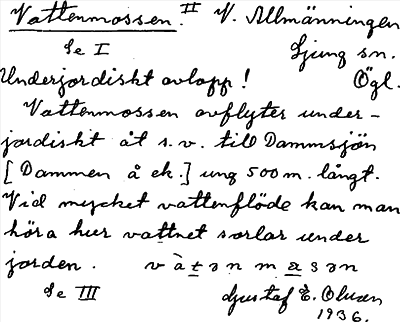 Vattenmossen. II V. Allmänningen
Se I Ljung sn.
Underjordiskt avlopp! Ögl.
Vattenmossen avflyter under-
jordiskt åt s.v. till Dammsjön
[Dammen å ek.] ung 500 m. långt.
Vid mycket vattenflöde kan man
höra hur vattnet sorlar under
jorden. v à t ə n m a s ə n
Se III Gustaf E. Olsson
1936.